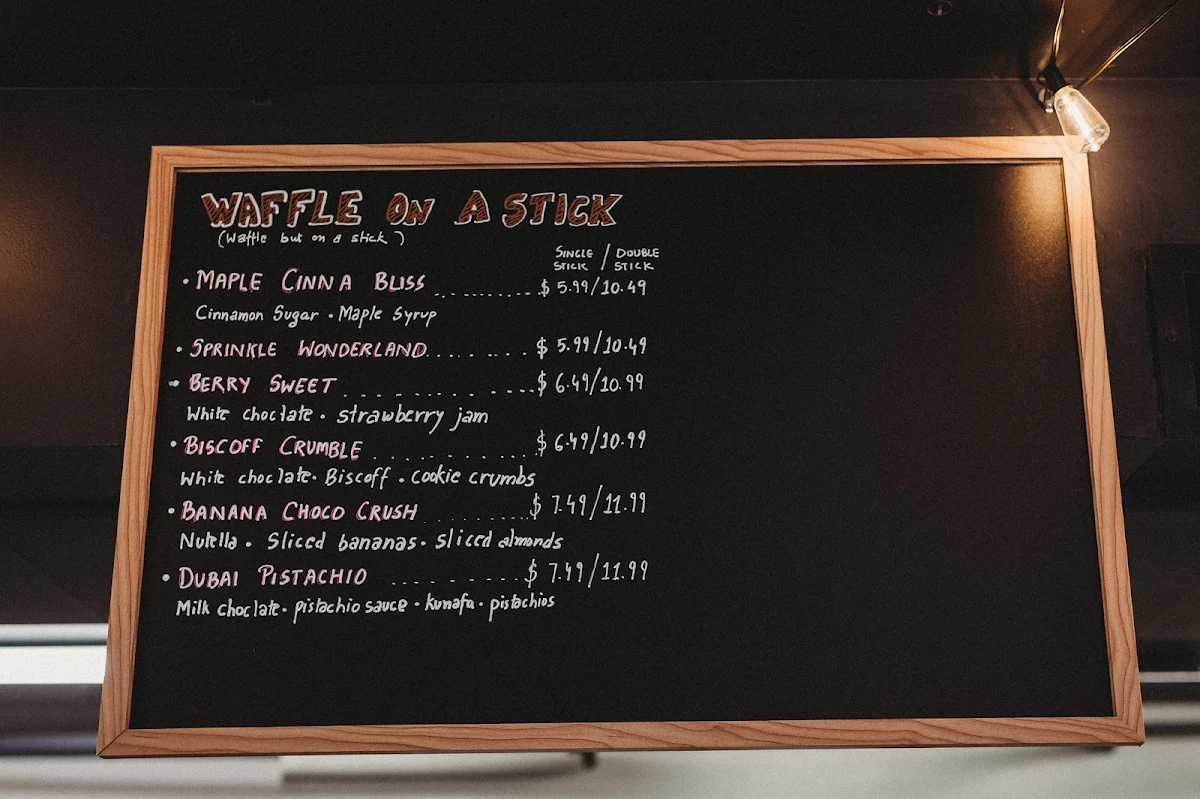 WAFFLE ON A STICK
(Waffle but on a stick)
SINGLE STICK / DOUBLE STICK
• MAPLE CINNA BLISS ............ $ 5.99/10.49
Cinnamon Sugar • Maple Syrup
• SPRINKLE WONDERLAND ....... $ 5.99/10.49
• BERRY SWEET ............. $ 6.49/10.99
White choclate • strawberry jam
• BISCOFF CRUMBLE ............. $ 6.49/10.99
White choclate • Biscoff • cookie crumbs
• BANANA CHOCO CRUSH ......... $ 7.49/11.99
Nutella • Sliced bananas • sliced almonds
• DUBAI PISTACHIO ............ $ 7.49/11.99
Milk choclate • pistachio sauce • kunafa • pistachios